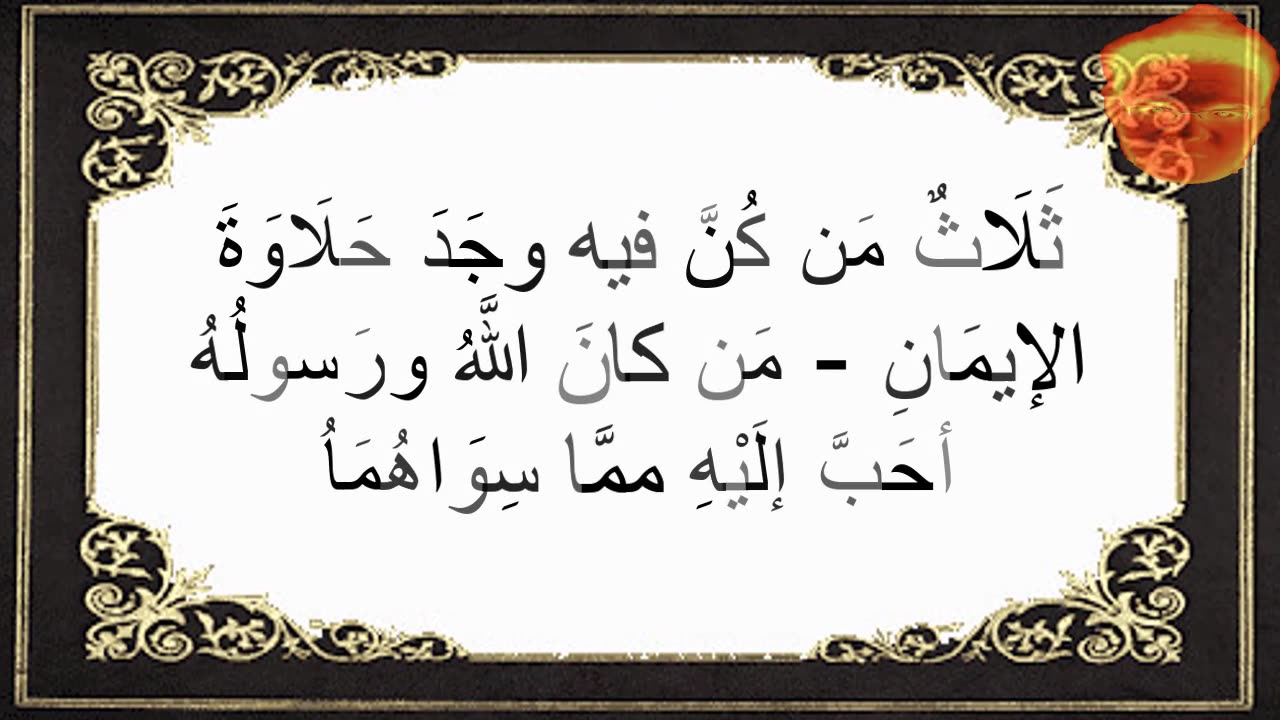 ثَلَاثٌ مَن كُنَّ فيه وجَدَ حَلَاوَةَ
الإيمَانِ - مَن كانَ اللَّهُ ورَسولُهُ
أحَبَّ إلَيْهِ ممَّا سِوَاهُمَاُ